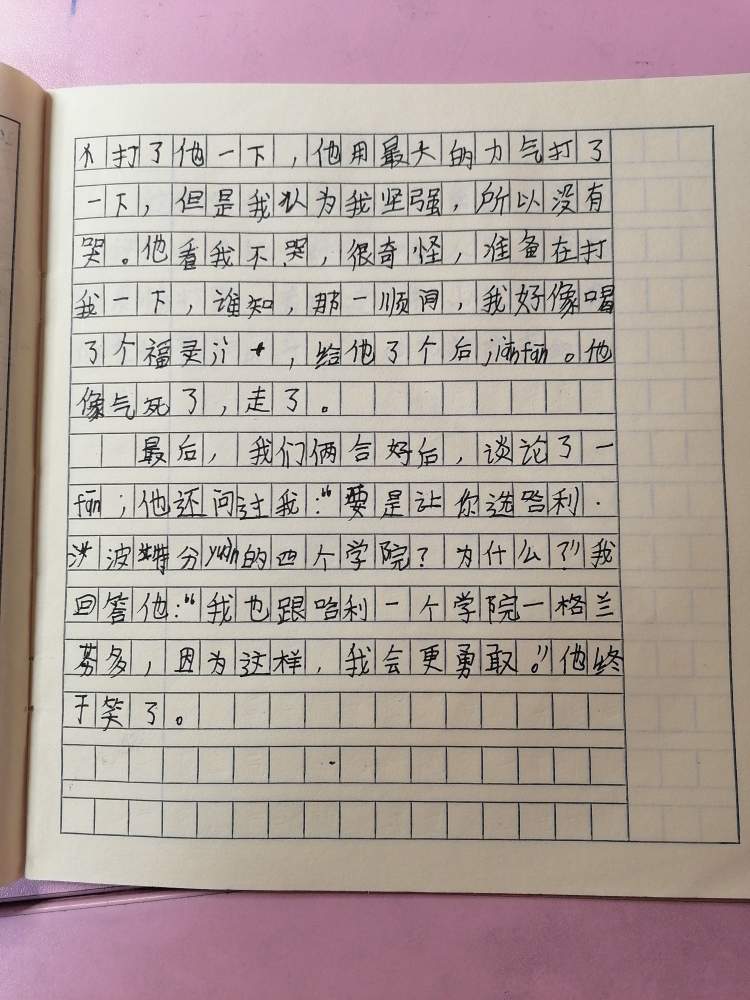 不打了他一下，他用最大的力气打了
一下，但是我认为我坚强，所以没有
哭。他看我不哭，很奇怪，准备在打
我一下，谁知，那一顺间，我好像喝
了个福灵jì，给他了个后jiānfān。他
像气死了，走了。
最后，我们俩合好后，谈论了一
fān；他还问过我：“要是让你选哈利·
波特分yuàn的四个学院？为什么？”我
回答他：“我也跟哈利一个学院一格兰
芬多，因为这样，我会更勇敢。”他终
于笑了。